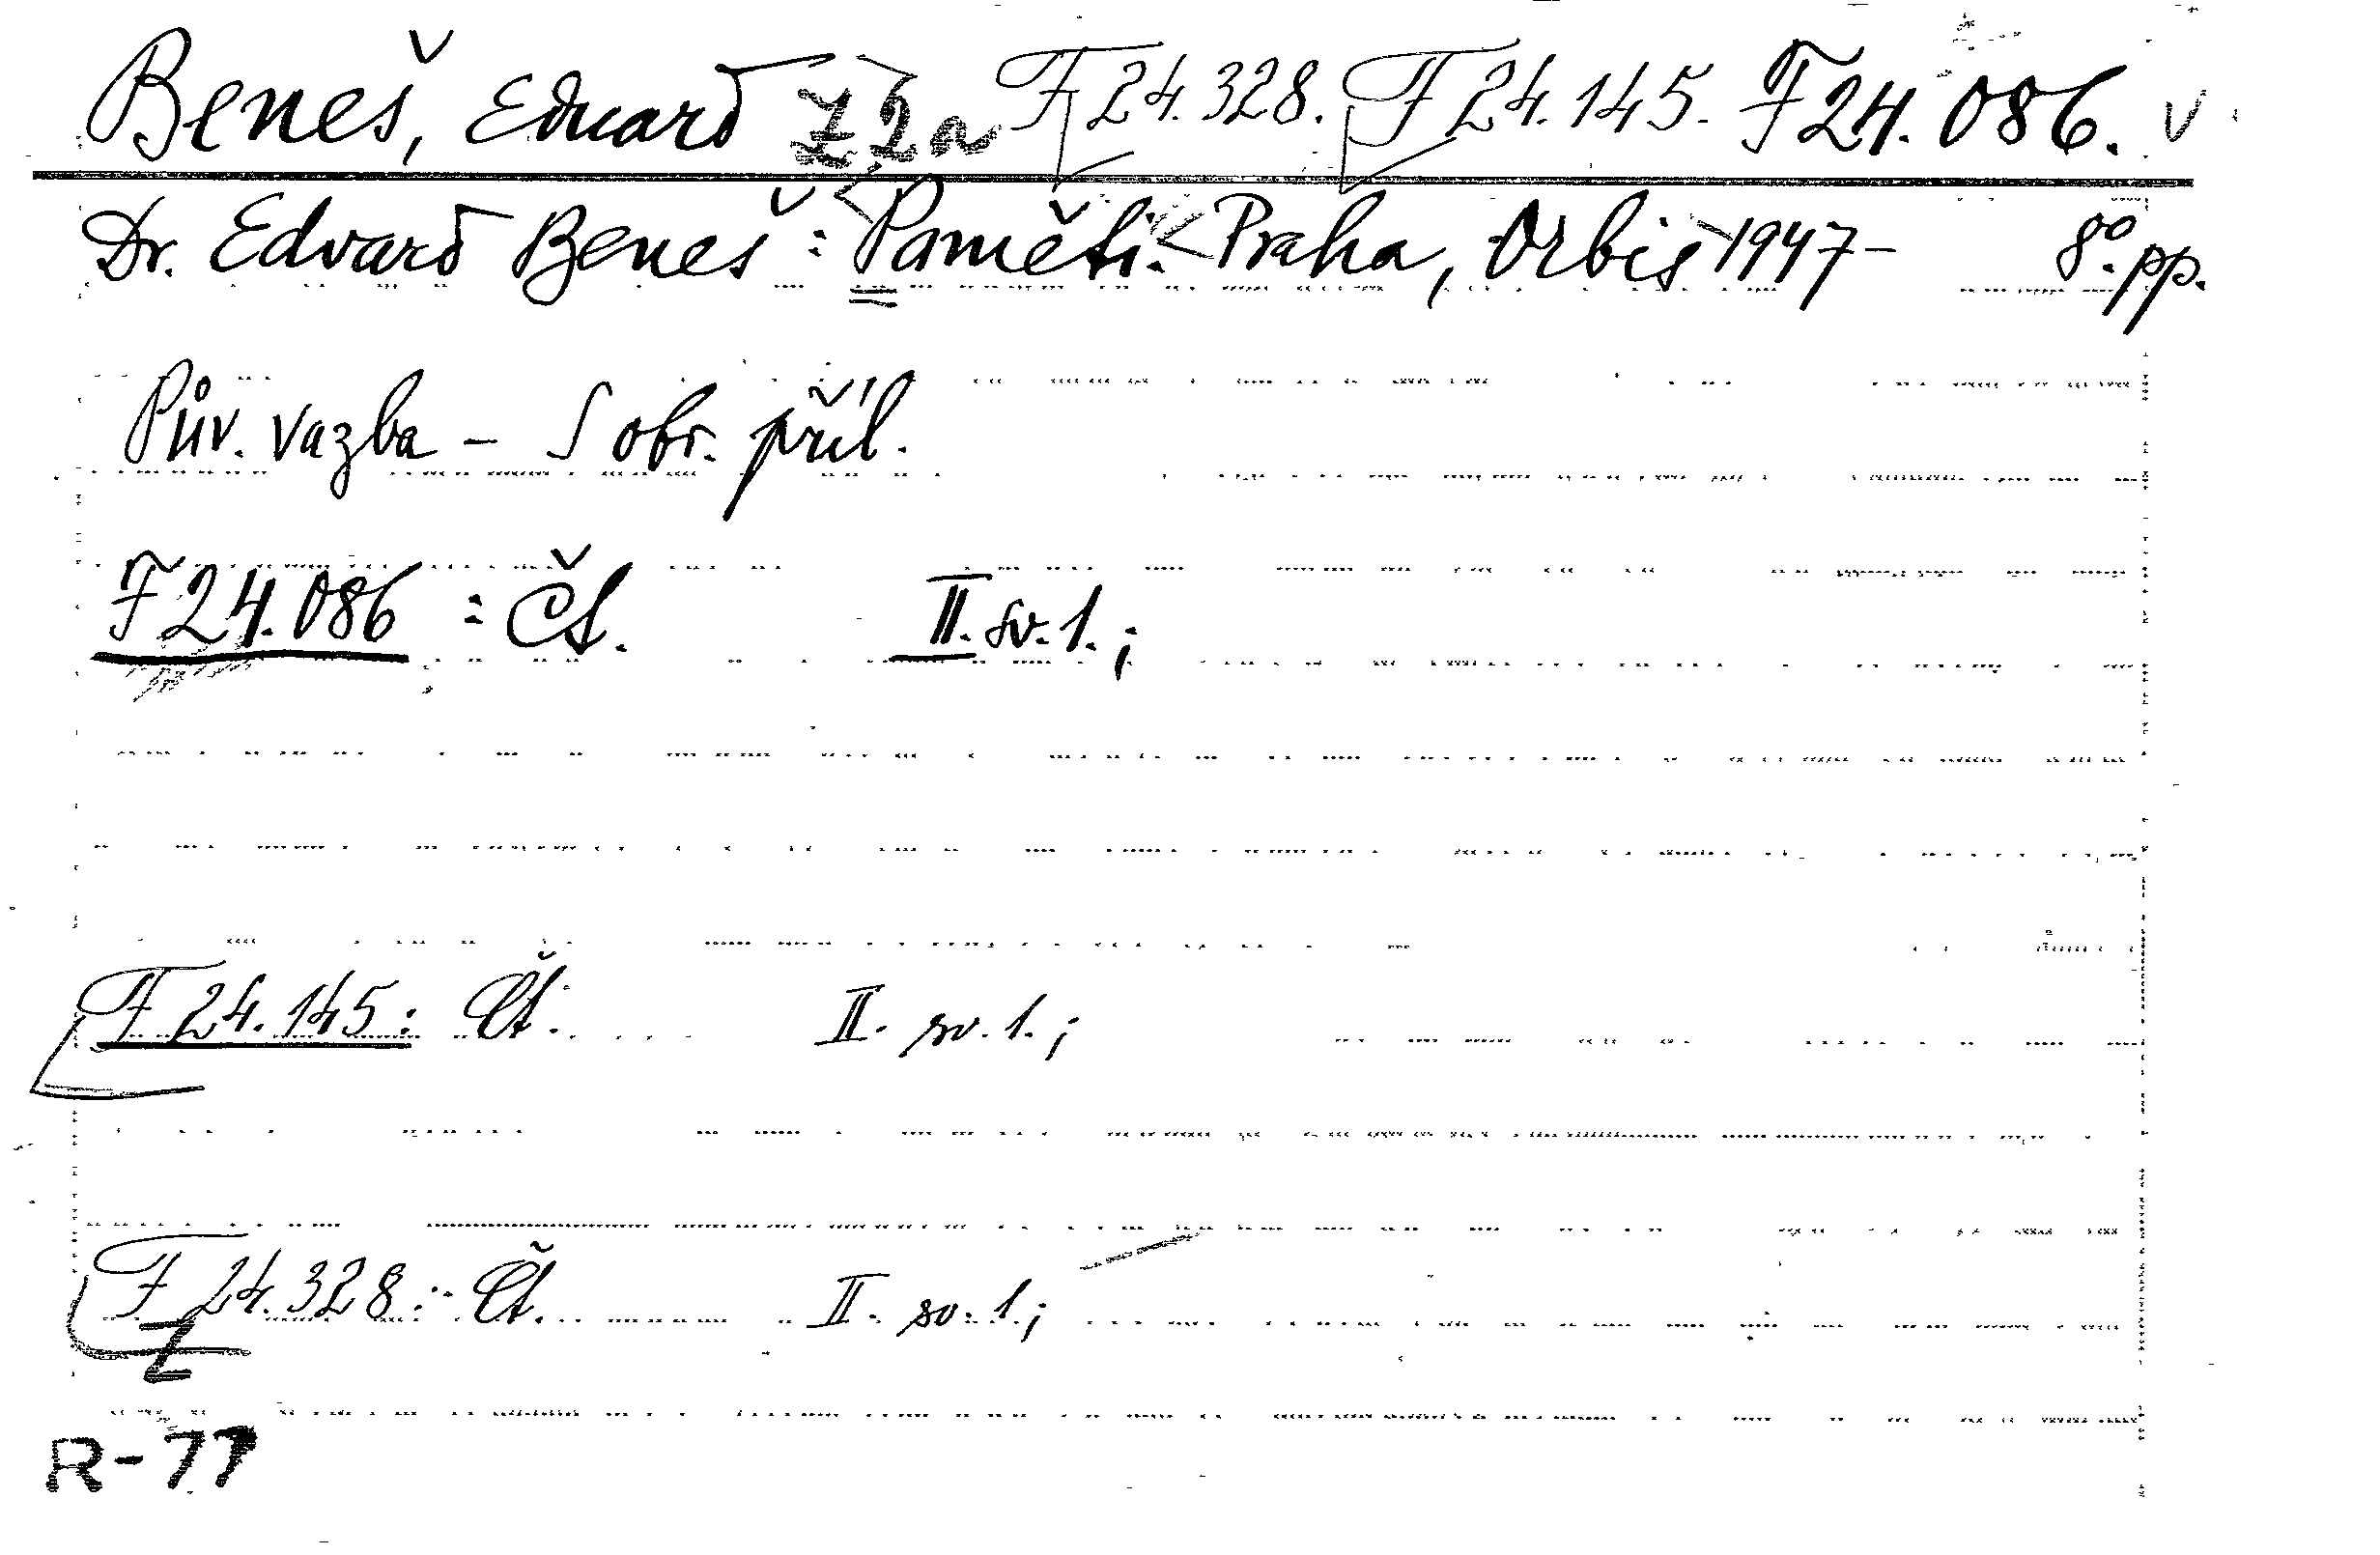 Beneš, Eduard Z 2a F 24.328. F 24.145. F 24.086. V
Dr. Edvard Beneš: Paměti. Praha, Orbis 1947- 8° pp.
Pův. vazba - S obr. příl.
F 24.086 : Čt. II. sv. 1.;
F 24.145: Čt. II. sv. 1.;
F 24.328: Čt. II. sv. 1.;
Z
R-77